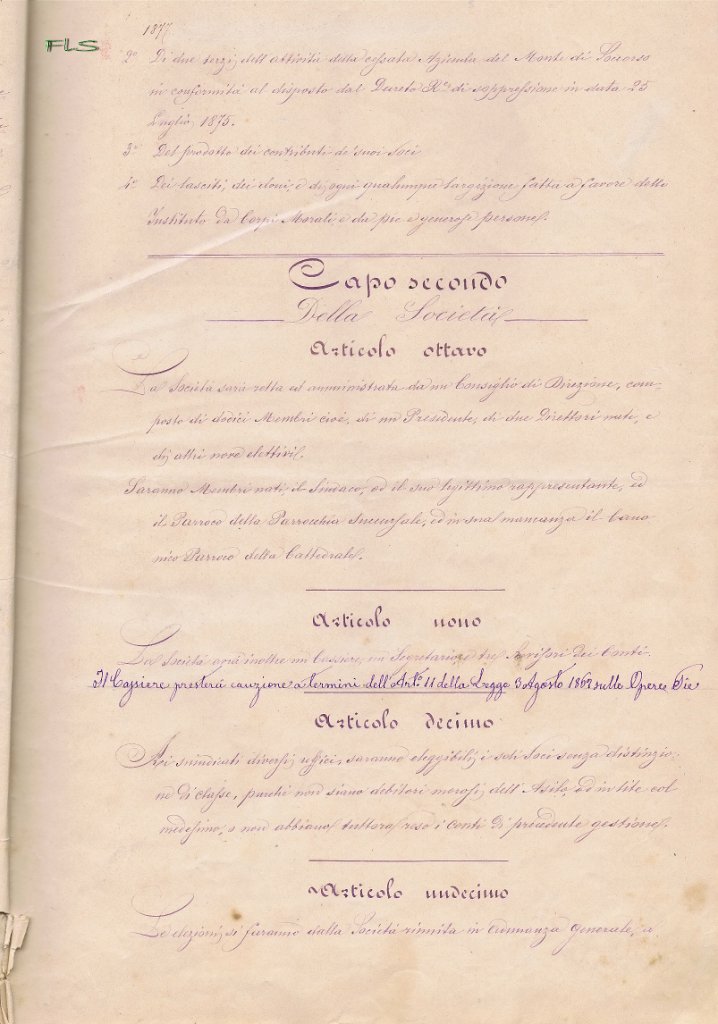 1877.
FLS
2° Di due terzi dell'attività della cessata Azienda del Monte di Soccorso
in conformità al disposto dal Decreto R.° di soppressione in data 25
Luglio 1875.
3° Del prodotto dei contributi de' suoi soci
4° Dei lasciti, dei doni, e di ogni qualunque largizione fatta a favore dello
Instituto da Corpi Morali, e da pie e generose persone.
Capo secondo
Della Società
Articolo ottavo
La Società sarà retta ed amministrata da un Consiglio di Direzione, com-
posto di dodici Membri cioè, di un Presidente, di due Direttori nati, e
di altri nove elettivi.
Saranno Membri nati, il Sindaco, od il suo legittimo rappresentante, ed
il Parroco della Parrocchia Succursale, ed in sua mancanza il Cano
nico Parroco della Cattedrale.
Articolo nono
La Società avrà inoltre un Cassiere, un Segretario e tre Revisori dei Conti.
Il Cassiere presterà cauzione a termini dell'Art.° 11 della Legge 3 Agosto 1862 sulle Opere Pie
Articolo decimo
Ai suindicati diversi uffici, saranno eleggibili i soli Soci senza distinzio-
ne di classe, purchè non siano debitori morosi dell'Asilo, od in lite col
medesimo, o non abbiano tuttora reso i conti di precedente gestione.
Articolo undecimo
Le elezioni si faranno dalla Società riunita in Adunanza generale, a